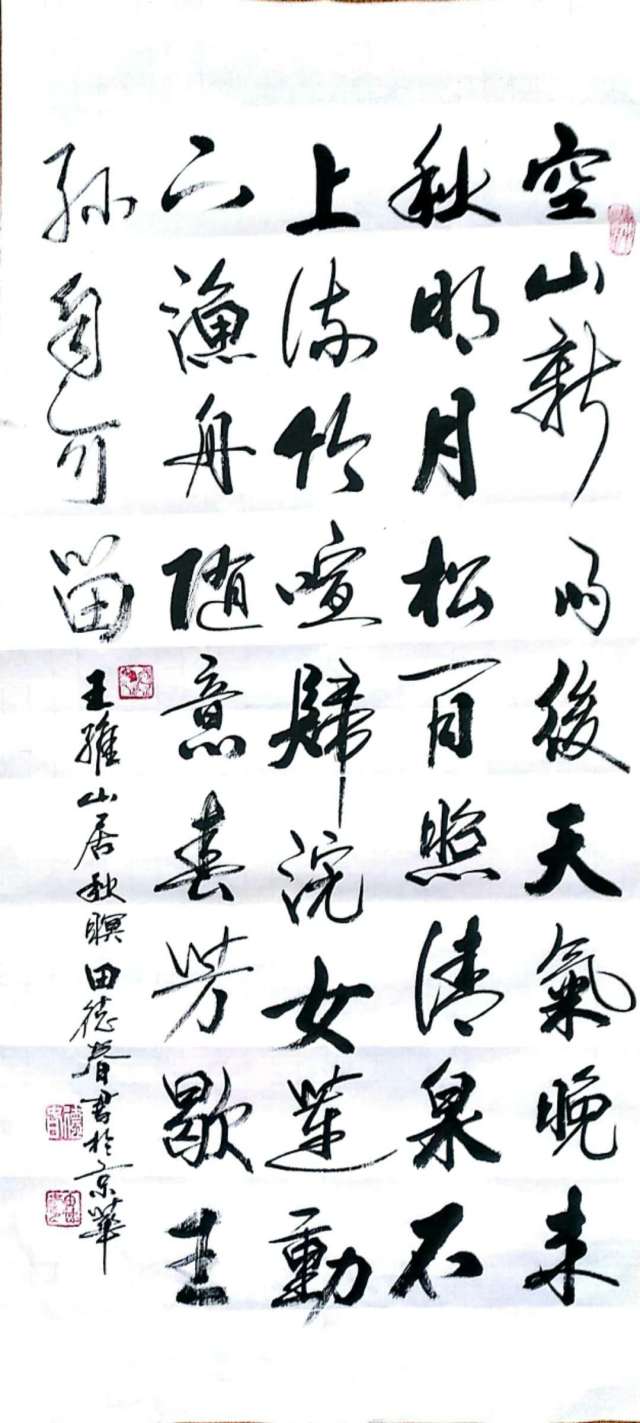 空山新雨後天氣晚来
秋明月松間照清泉石
上流竹喧歸浣女蓮動
下漁舟随意春芳歇王
孫自可留
王維山居秋暝田德春書於京華